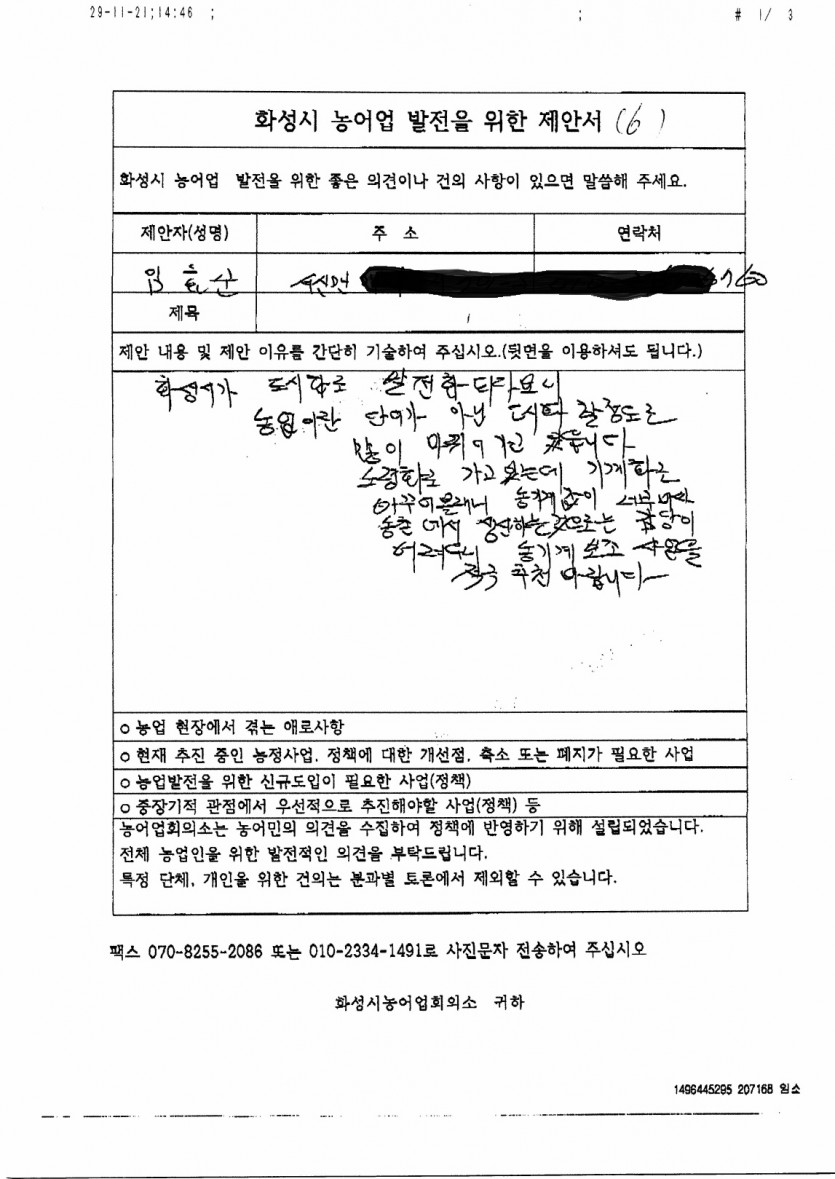 29-11-21;14:46 ; ; # 1/ 3
화성시 농어업 발전을 위한 제안서 (6)
화성시 농어업 발전을 위한 좋은 의견이나 건의 사항이 있으면 말씀해 주세요.
제안자(성명) 주 소 연락처
임 산 서신면
제목
제안 내용 및 제안 이유를 간단히 기술하여 주십시오.(뒷면을 이용하셔도 됩니다.)
화성시가 도시화로 발전하다보니
농업이란 단어가 아닌 도시화 할정도로
많이 바뀌어가고 있습니다
노령화로 가고 있는데 기계화는
바꾸어볼래니 농기계값이 너무비싸
농촌에서 생산하는것으로는 감당이
어려우니 농기계 보조 사업을
적극 추천 바랍니다
○ 농업 현장에서 겪는 애로사항
○ 현재 추진 중인 농정사업, 정책에 대한 개선점, 축소 또는 폐지가 필요한 사업
○ 농업발전을 위한 신규도입이 필요한 사업(정책)
○ 중장기적 관점에서 우선적으로 추진해야할 사업(정책) 등
농어업회의소는 농어민의 의견을 수집하여 정책에 반영하기 위해 설립되었습니다.
전체 농업인을 위한 발전적인 의견을 부탁드립니다.
특정 단체, 개인을 위한 건의는 분과별 토론에서 제외할 수 있습니다.
팩스 070-8255-2086 또는 010-2334-1491로 사진문자 전송하여 주십시오
화성시농어업회의소 귀하
1496445295 207168 임소